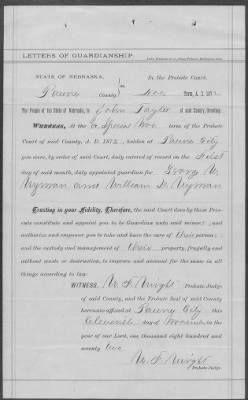 LETTERS OF GUARDIANSHIP.
STATE OF NEBRASKA, In the Probate Court.
Pawnee County, ss Nov. Term, A. D. 187
The People of the State of Nebraska, to John Taylor of said County, Greeting:
WHEREAS, at the Special Nov. term of the Probate
Court of said County, A. D. 1872, holden at Pawnee City
you were, by order of said Court, duly entered of record on the First
day of said month, duly appointed guardian for W.
Wyman and William D. Wyman
Trusting in your Fidelity, Therefore, the said Court does by these Presents
constitute and appoint you to be Guardian unto said minor; and
authorize and empower you to take and have the care of their person;
and the custody and management of their property, frugally and
without waste or destruction, to improve and account for the same in all
things according to law.
WITNESS, W. F. Wright Probate Judge
of said County, and the Probate Seal of said County
hereunto affixed at Pawnee City this
Eleventh day of November in the
year of our Lord, one thousand eight hundred and
seventy two
W. F. Wright
Probate Judge.